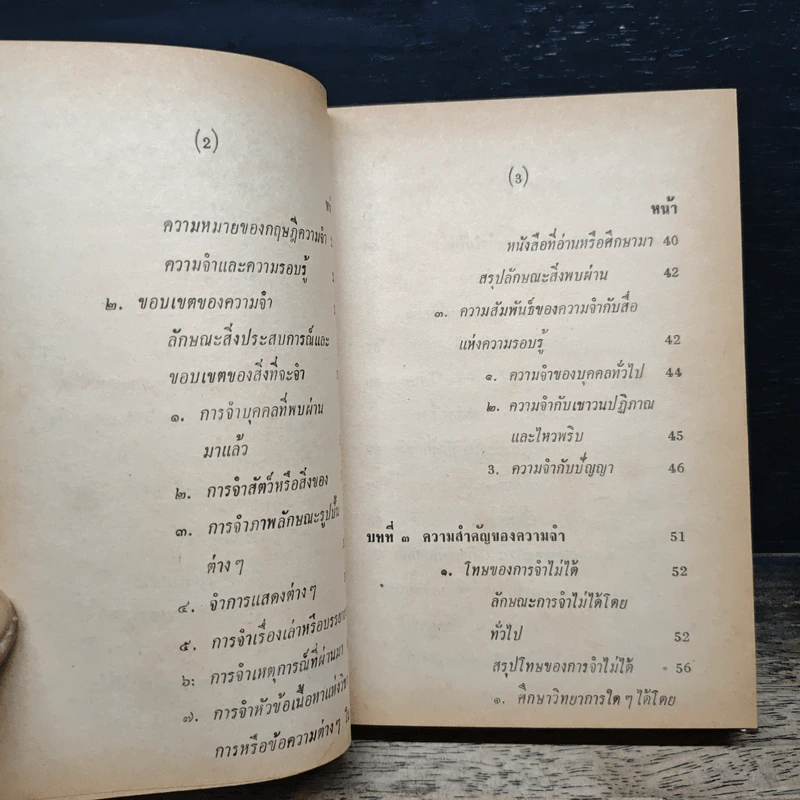 (2)
ความหมายของกฤษฎีความจำ
ความจำและความรอบรู้
๒. ขอบเขตของความจำ
ลักษณะสิ่งประสบการณ์และ
ขอบเขตของสิ่งที่จะจำ
๑. การจำบุคคลที่พบผ่าน
มาแล้ว
๒. การจำสัตว์หรือสิ่งของ
๓. การจำภาพลักษณะรูปปั้น
ต่าง ๆ
๔. จำการแสดงต่าง ๆ
๕. การจำเรื่องเล่าหรือบรรยาย
๖. การจำเหตุการณ์ที่ผ่านมา
๗. การจำหัวข้อเนื้อหาแห่งวิชา
การหรือข้อความต่าง ๆ
(3)
หน้า
หนังสือที่อ่านหรือศึกษามา 40
สรุปลักษณะสิ่งพบผ่าน 42
๓. ความสัมพันธ์ของความจำกับสื่อ
แห่งความรอบรู้ 42
๑. ความจำของบุคคลทั่วไป 44
๒. ความจำกับเชาวนปฏิภาณ
และไหวพริบ 45
3. ความจำกับปัญญา 46
บทที่ ๓ ความสำคัญของความจำ 51
๑. โทษของการจำไม่ได้ 52
ลักษณะการจำไม่ได้โดย
ทั่วไป 52
สรุปโทษของการจำไม่ได้ 56
๑. ศึกษาวิทยาการใด ๆ ได้โดย